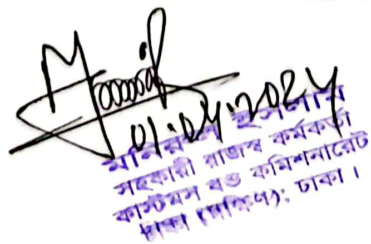 01.04.2024
মনিরুল ইসলাম
সহকারী রাজস্ব কর্মকর্তা
কাস্টমস বন্ড কমিশনারেট
ঢাকা (দক্ষিণ); ঢাকা।